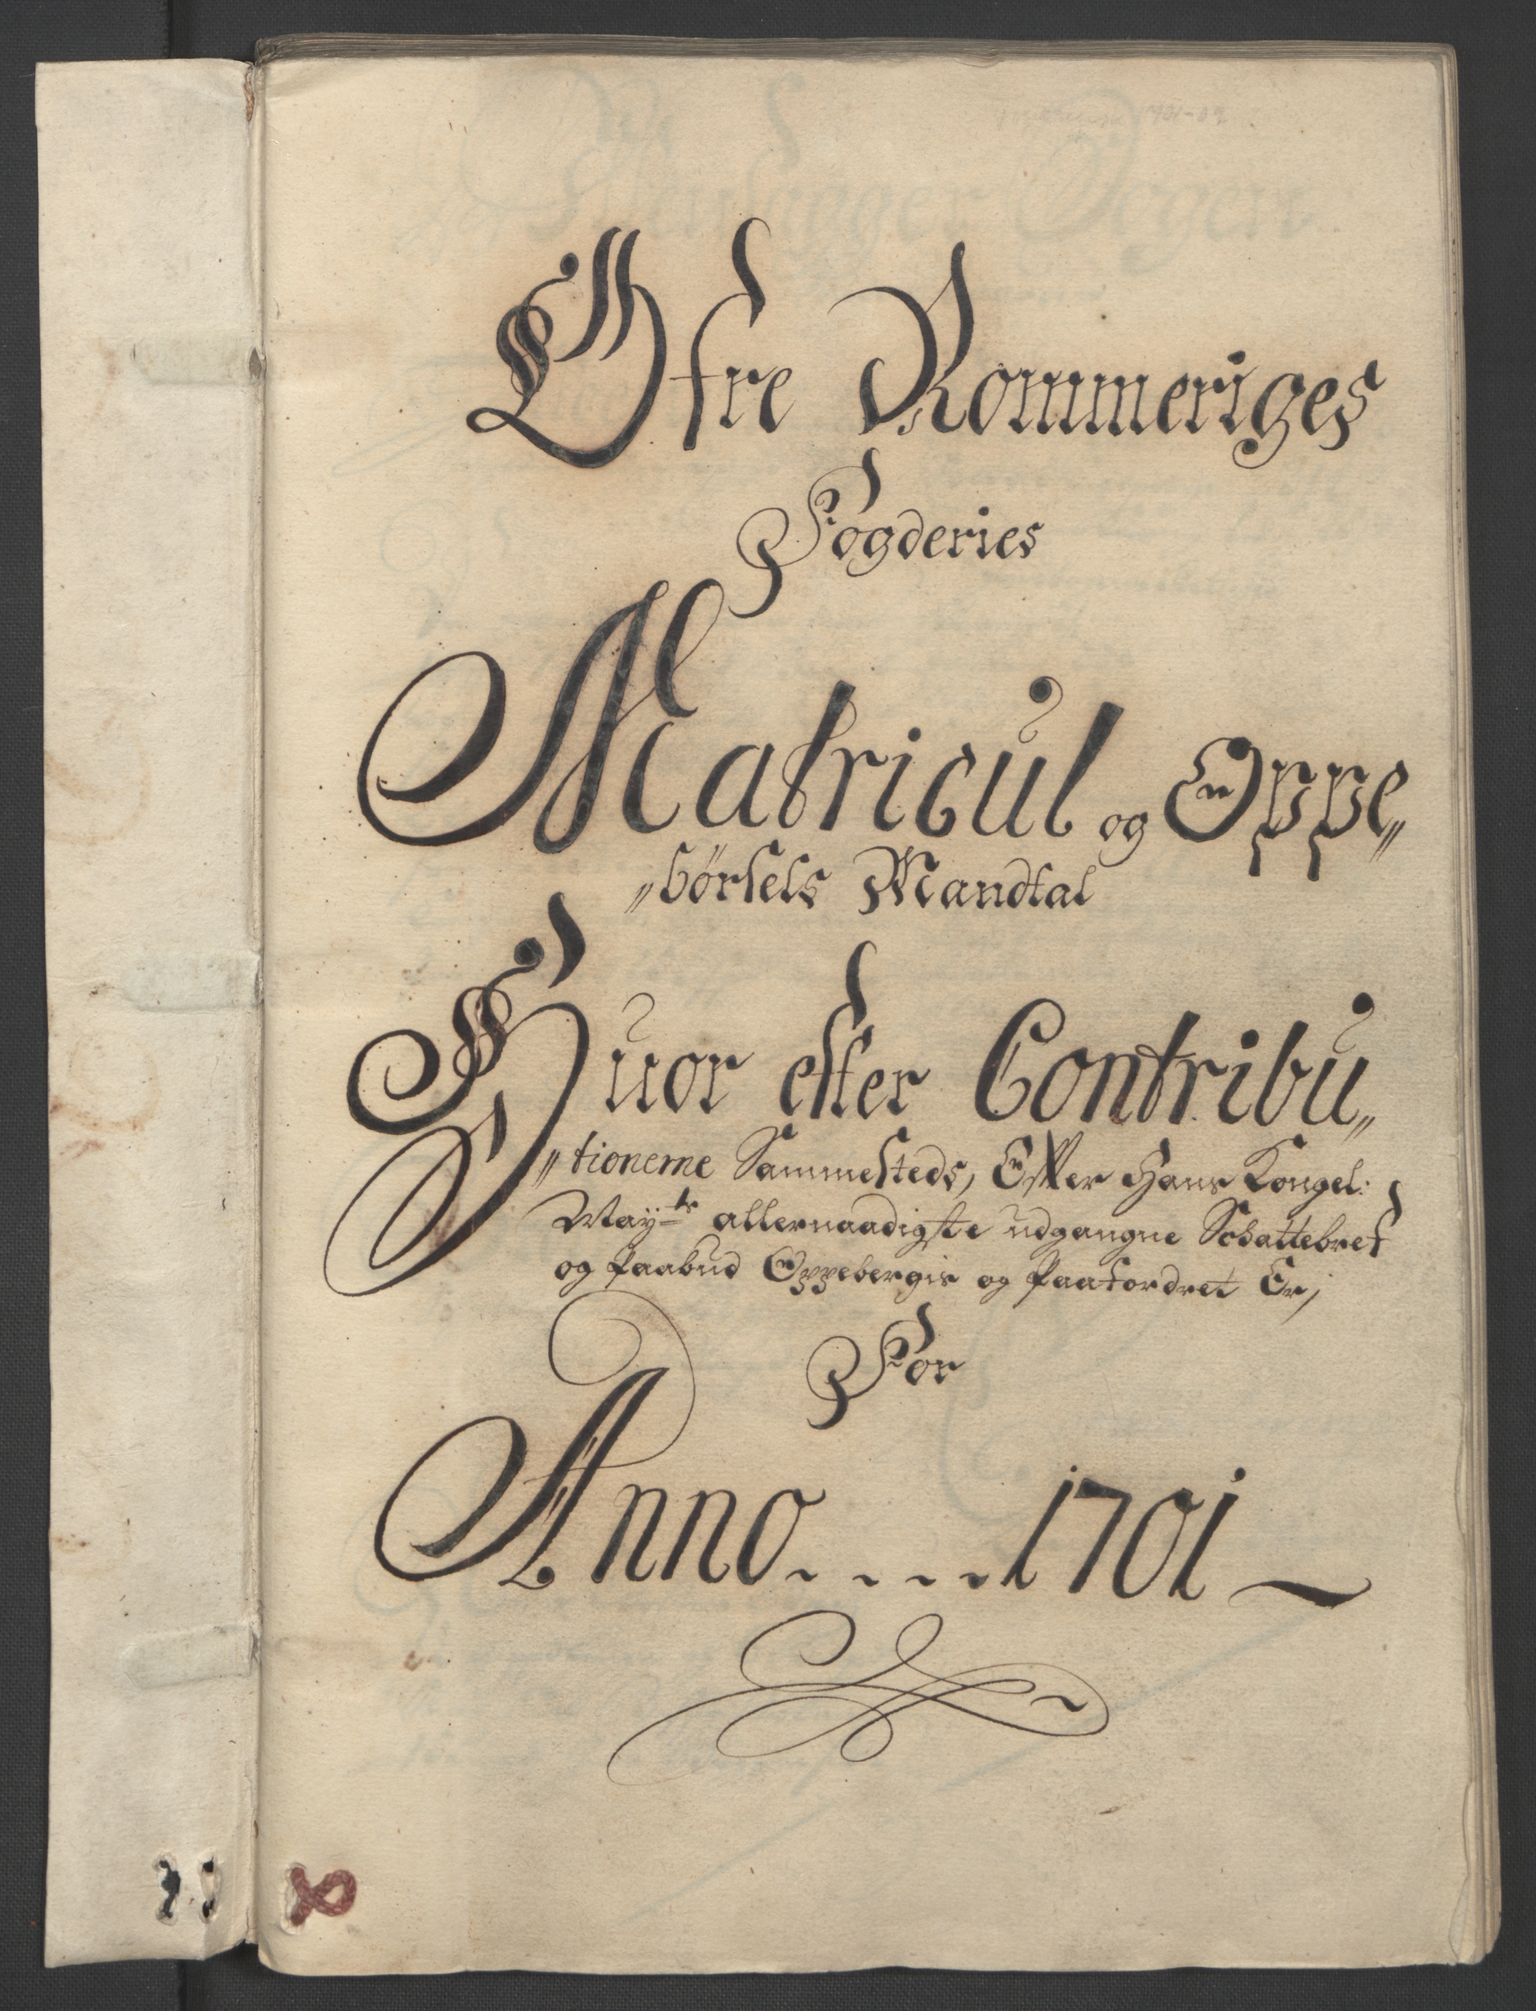 Øfre Rommeriges
Fogderies
Matricul og Oppe„
„børsels Mandtal
Huor efter Contribu„
„tionerne Sammesteds, Effter Hans Kongel:
May:ts allernaadigste udgangne Schattebref
og Paabud Oppebergis og Paafordret Er,
For
Anno....1701